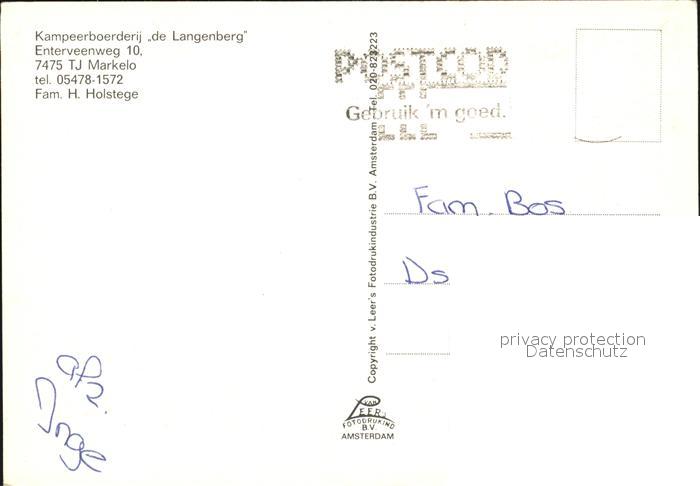 Kampeerboerderij „de Langenberg"
Enterveenweg 10,
7475 TJ Markelo
tel. 05478-1572
Fam. H. Holstege
POSTCODE
Gebruik 'm goed.
Copyright v. Leer's Fotodrukindustrie B.V. Amsterdam Tel. 020-823223
Fam. Bos
Ds
privacy protection
Datenschutz
Inge
VAN
LEER'S
FOTODRUKIND
B.V.
AMSTERDAM